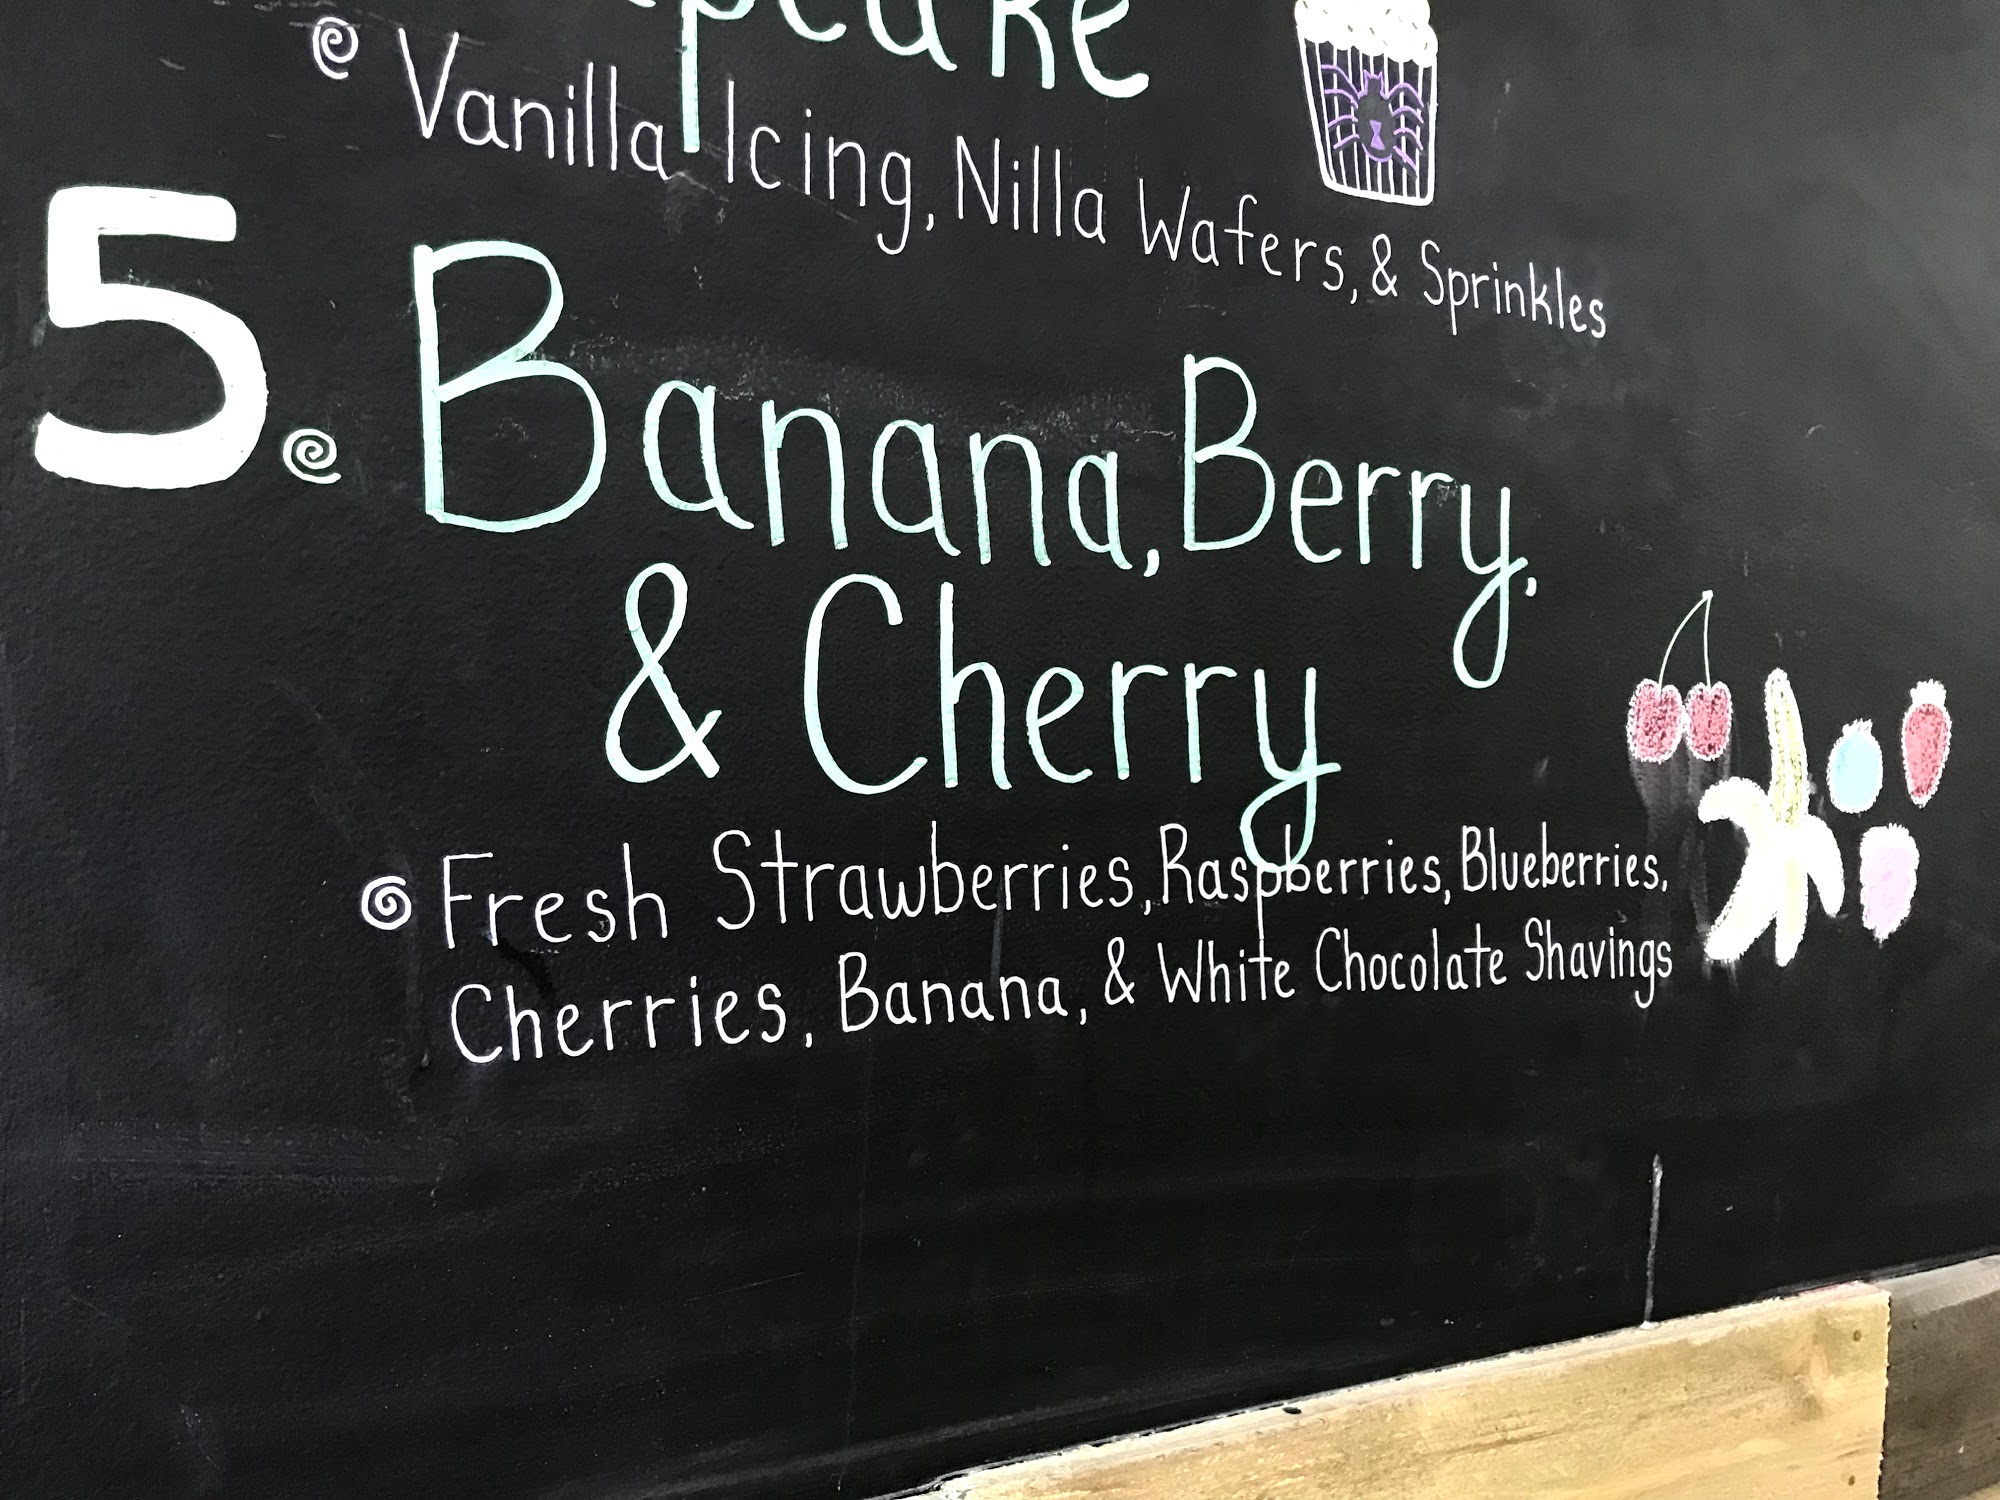 pcake
Vanilla Icing, Nilla Wafers, & Sprinkles
5. Banana, Berry,
& Cherry
Fresh Strawberries, Raspberries, Blueberries,
Cherries, Banana, & White Chocolate Shavings